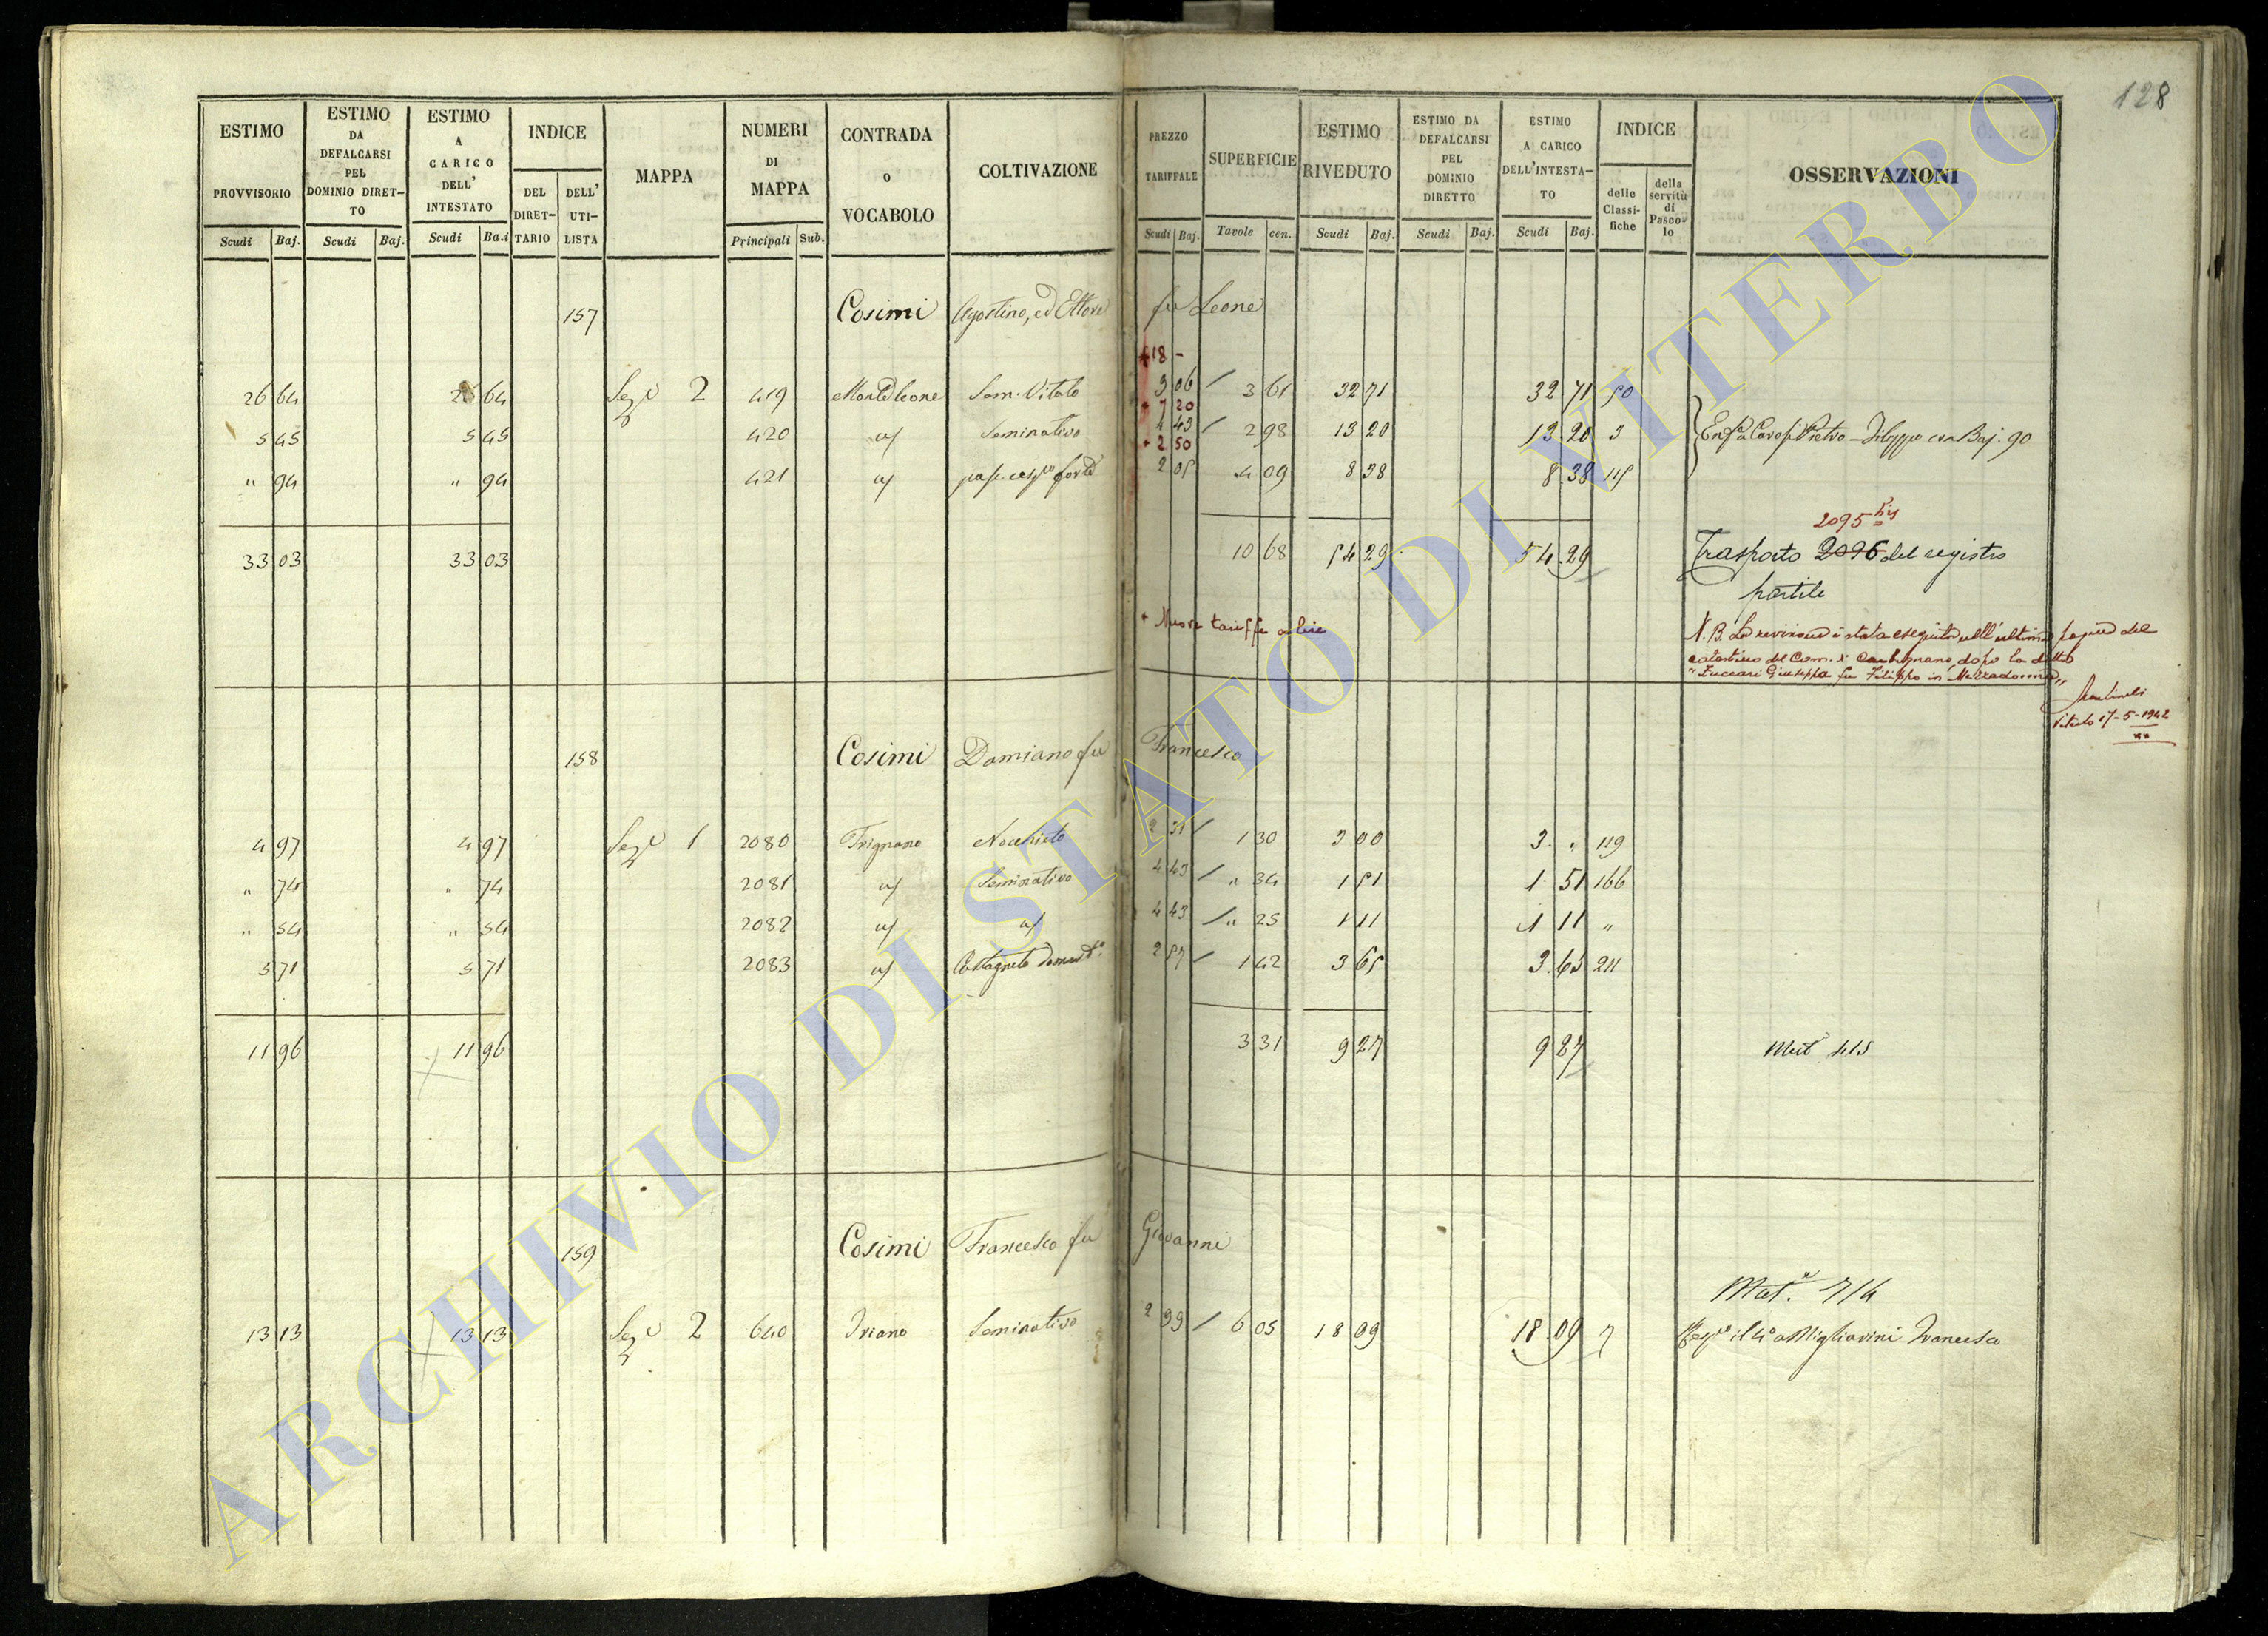 128
ESTIMO PROVVISORIO
ESTIMO DA DEFALCARSI PEL DOMINIO DIRET-TO
ESTIMO A CARICO DELL' INTESTATO
INDICE
DEL DIRET-TARIO
DELL' UTI-LISTA
MAPPA
NUMERI DI MAPPA
CONTRADA o VOCABOLO
COLTIVAZIONE
PREZZO TARIFFALE
SUPERFICIE
ESTIMO RIVEDUTO
ESTIMO DA DEFALCARSI PEL DOMINIO DIRETTO
ESTIMO A CARICO DELL'INTESTA-TO
INDICE
delle Classi-fiche
della servitù di Pasco-lo
OSSERVAZIONI
Scudi Baj. Scudi Baj. Scudi Ba.i Principali Sub. Scudi Baj. Tavole cen. Scudi Baj. Scudi Baj. Scudi Baj.
157 Cosimi Agostino, ed Ettore fu Leone
+ 18 -
26 64 26 64 Sez. 2 419 Monteleone Sem. Vitato 9 06 / 3 61 32 71 32 71 50
+ 7 20
5 45 5 45 420 Seminativo 4 43 / 2 98 13 20 13 20 3 Pietro - Filippo Baj. 90
+ 2 50
" 94 " 94 421 pasc. forte 2 05 4 09 8 38 8 38 115
2095 bis
33 03 33 03 10 68 54 29 54 29 Trasporto 2096 del registro
partite
+ Nuove tariffe in lire
N.B. La revisione è stata eseguita nell'ultima pagina del
catastino del Com. di Carbognano, dopo la ditta
"Zuccari Giuseppa fu Filippo in Mezzadonna"
Viterbo 17-5-1942
158 Cosimi Damiano fu Francesco
4 97 4 97 Sez. 1 2080 Trignano Nocchieto 2 31 / 1 30 3 00 3 " 119
" 74 " 74 2081 Seminativo 4 43 / " 34 1 51 1 51 166
" 54 " 54 2082 4 43 / " 25 1 11 1 11 "
5 71 5 71 2083 Castagneto domest.o 2 57 / 1 42 3 65 3 65 211
11 96 11 96 3 31 9 27 9 27 Mut 415
159 Cosimi Francesco fu Giovanni
Mut. 714
13 13 13 13 Sez. 2 640 Iriano Seminativo 2 99 / 6 05 18 09 18 09 7 il a Migliarini Francesca
ARCHIVIO DI STATO DI VITERBO